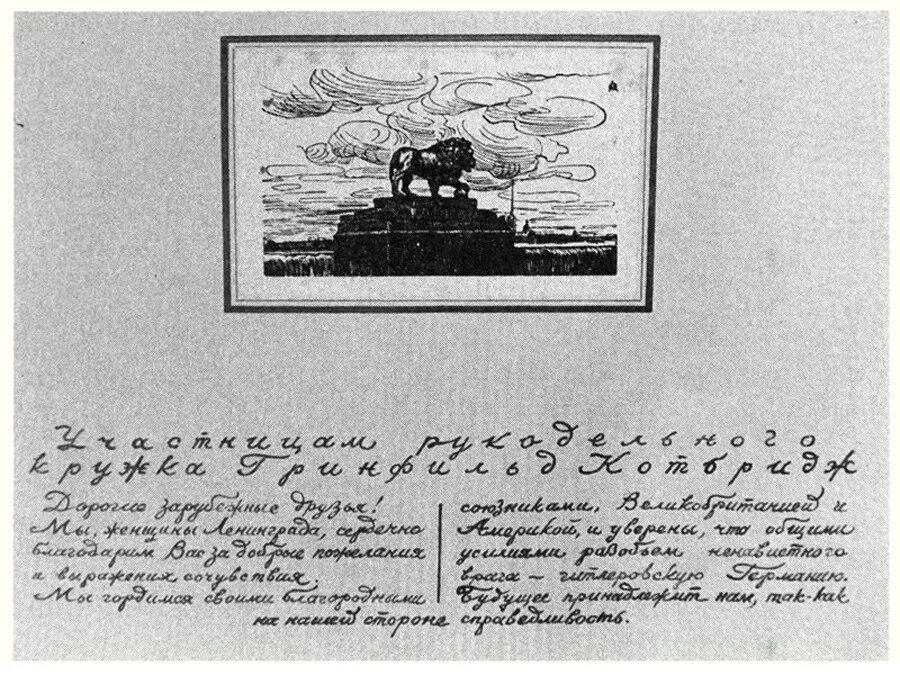 Участницам рукодельного
кружка Гринфильд Котбридж
Дорогие зарубежные друзья!
Мы, женщины Ленинграда, сердечно
благодарим Вас за добрые пожелания
и выражения сочувствия,
Мы гордимся своими благородными
союзниками, Великобританией и
Америкой, и уверены, что общими
усилиями разобьем ненавистного
врага – гитлеровскую Германию.
Будущее принадлежит нам, так-как
на нашей стороне справедливость.